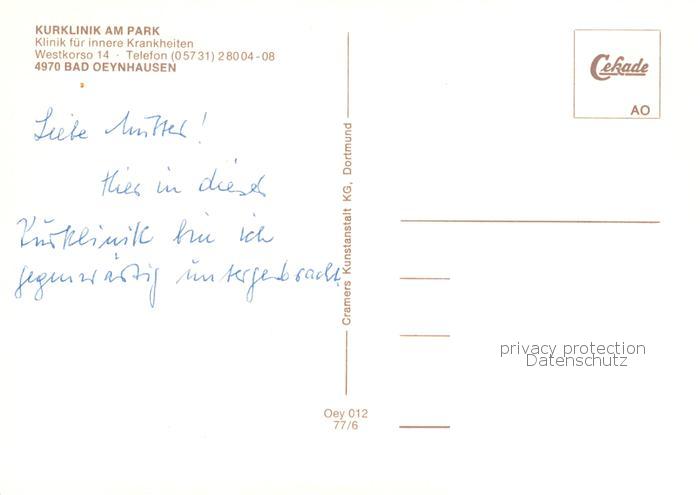 KURKLINIK AM PARK
Klinik für innere Krankheiten
Westkorso 14 · Telefon (05731) 28004-08
4970 BAD OEYNHAUSEN
Liebe Mutter!
Hier in dieser
Kurklinik bin ich
gegenwärtig untergebracht.
Cramers Kunstanstalt KG, Dortmund
Oey 012
77/6
Cekade
AO
privacy protection
Datenschutz